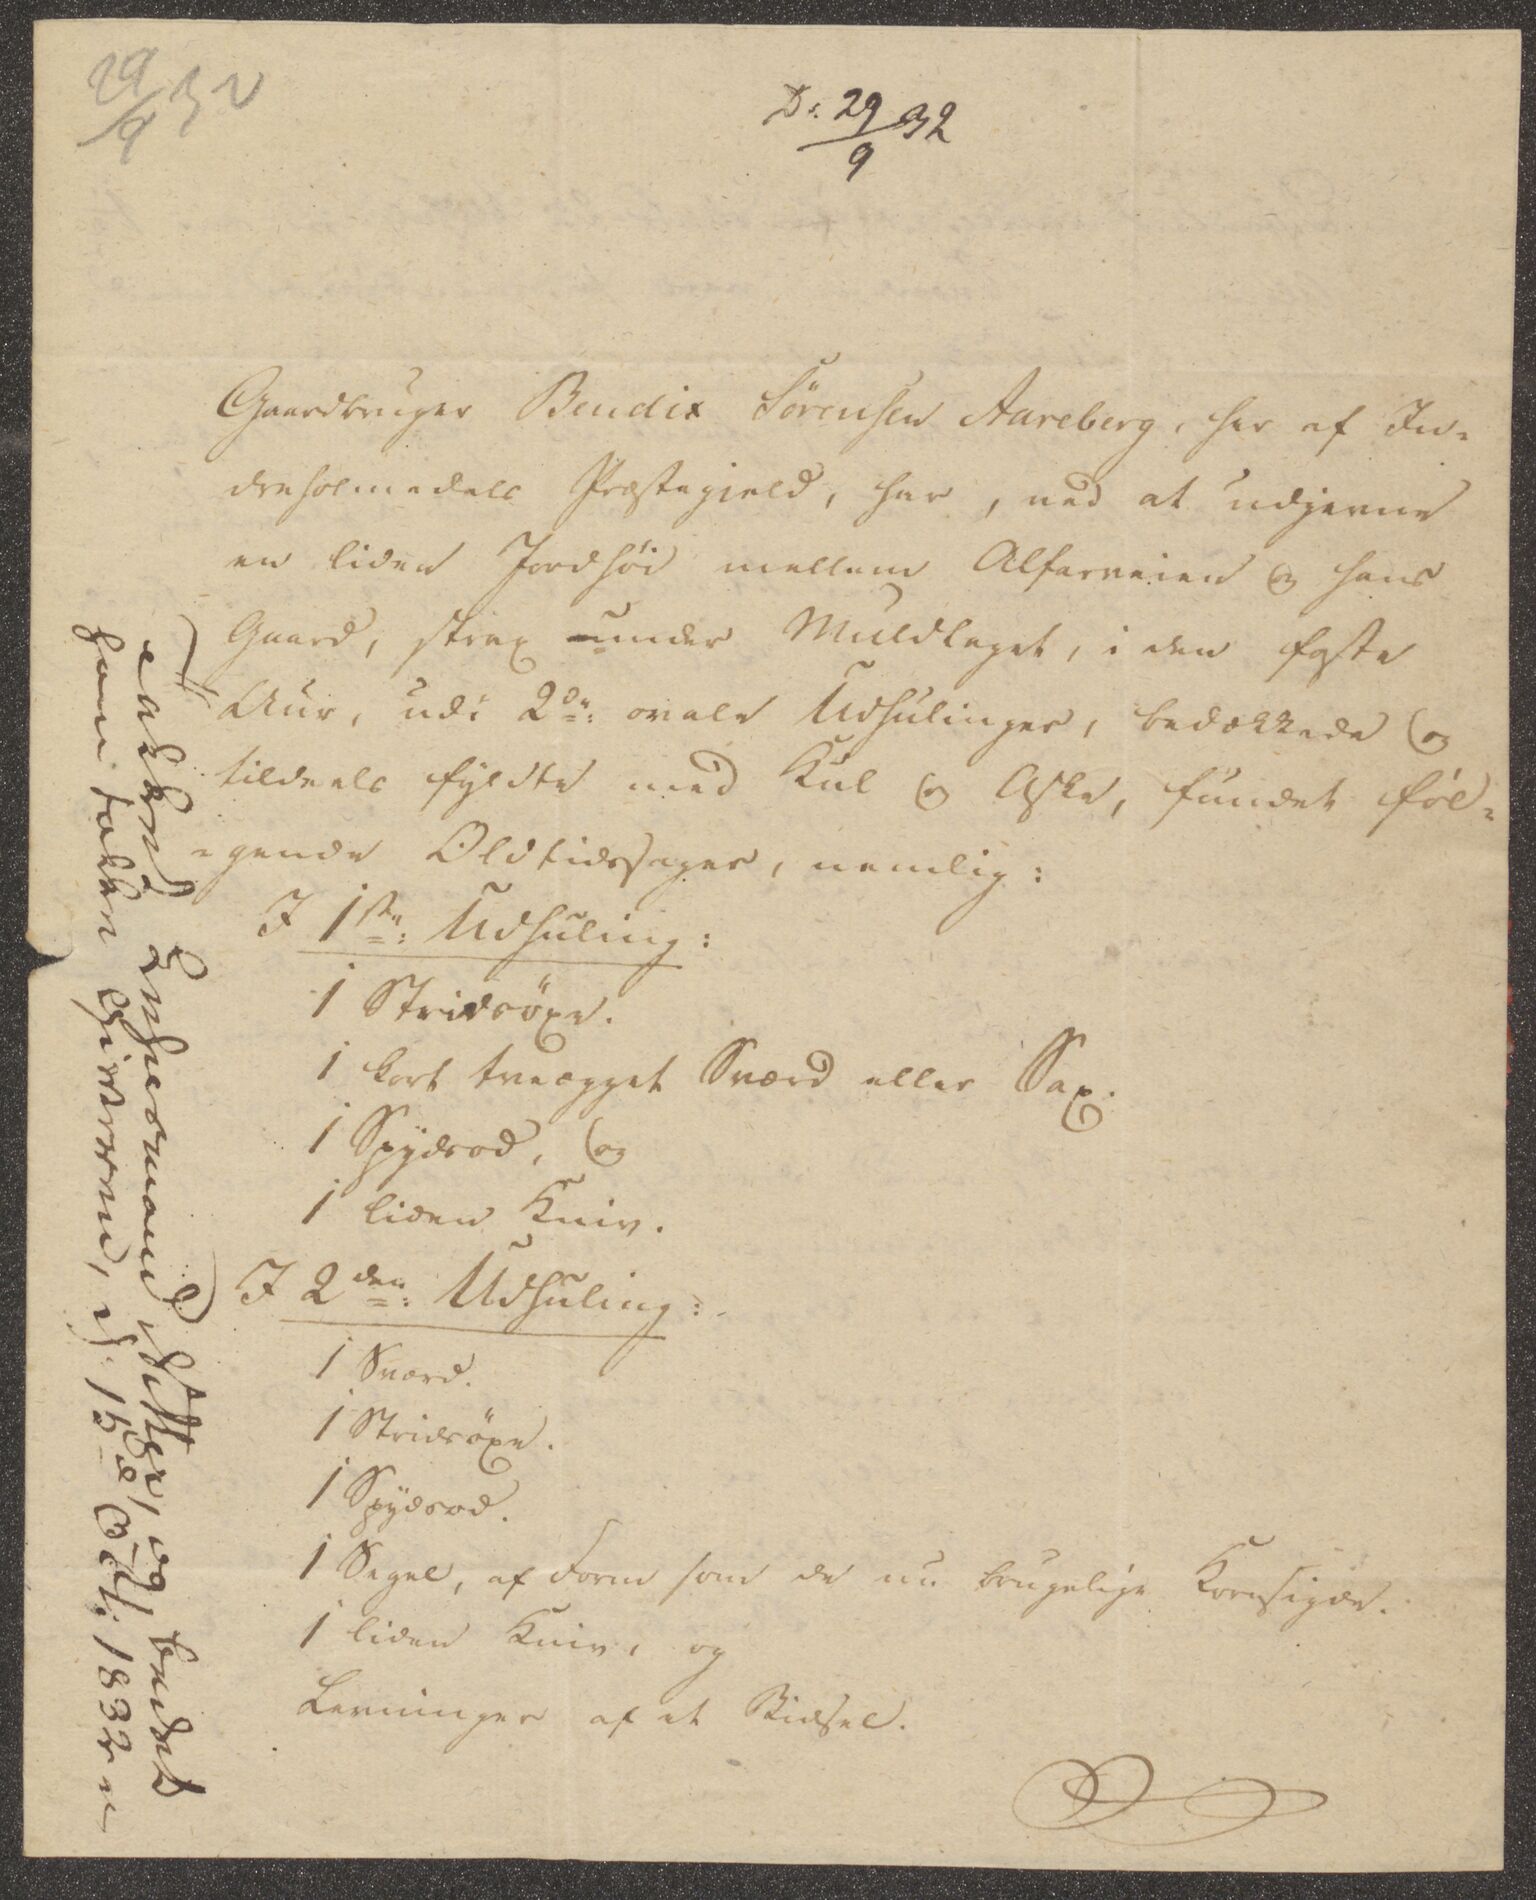 29/9 32
D: 29/9 32
Gaardbruger Bendix Sörensen Aareberg, her af In-
dreholmedals Præstegield, har, ved at udjevne
en liden Jordhöi mellem Alfarveien og hans
Gaard, strax under Muldlaget, i den faste
Aur, udi 2de: ovale Udhulinger, bedækkede og
tildeels fyldte med Kul og Aske, fundet föl-
-gende Oldtidssager, nemlig:
I 1ste: Udhuling:
1 Stridsöxe.
1 kort tveægget Sværd eller Sax.
1 Spydsod, og
1 liden Kniv.
I 2den: Udhuling:
1 Sværd.
1 Stridsöxe.
1 Spydsod.
1 Segel, af Form som de nu brugelige Kornsigde.
1 liden Kniv, og
Levninger af et Bidsel.
og sendt
15de Oct: 1832